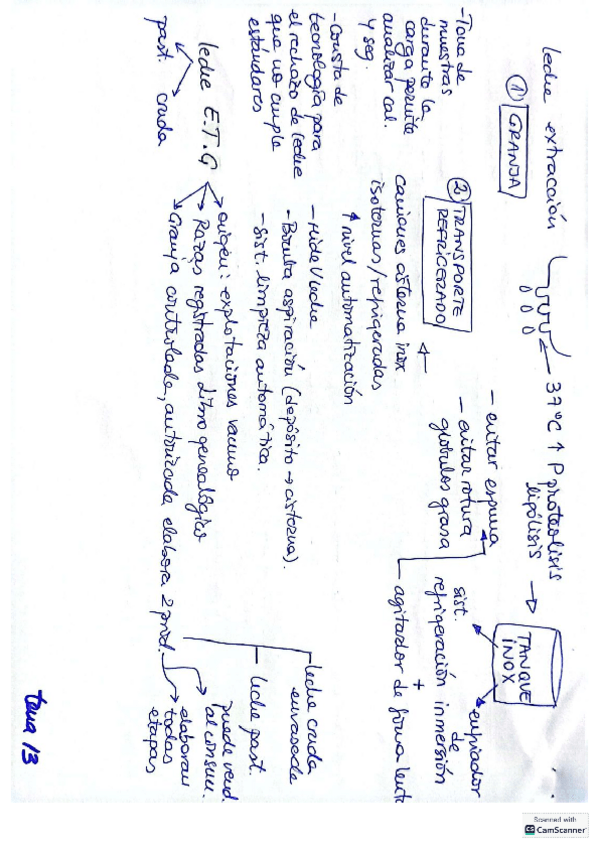 leche extracción
37ºC ↑ P proteolisis
lipólisis →
TANQUE
INOX
enfriador
① GRANJA
- evitar espuma
- evitar rotura
glóbulos grasa
sist.
refrigeración
de
inmersión
+
- agitador de forma lenta
② TRANSPORTE
REFRIGERADO
camiones cisterna inox
isotermas/refrigeradas
↑ nivel automatización
- Mide V leche
- Bomba aspiración (depósito → cisterna).
- Sist. limpieza automática.
- Toma de
muestras
durante la
carga permite
analizar cal.
4 seg.
- Consta de
tecnología para
el rechazo de leche
que no cumple
estándares
leche E.T.G
past. cruda
origen: explotaciones vacuno
Razas registradas libro genealógico
Granja controlada, autorizada elabora 2 prod.
- leche cruda
envasada
- leche past.
puede vend.
al consum.
elaboran
todas
etapas
tema 13
Scanned with
CS CamScanner